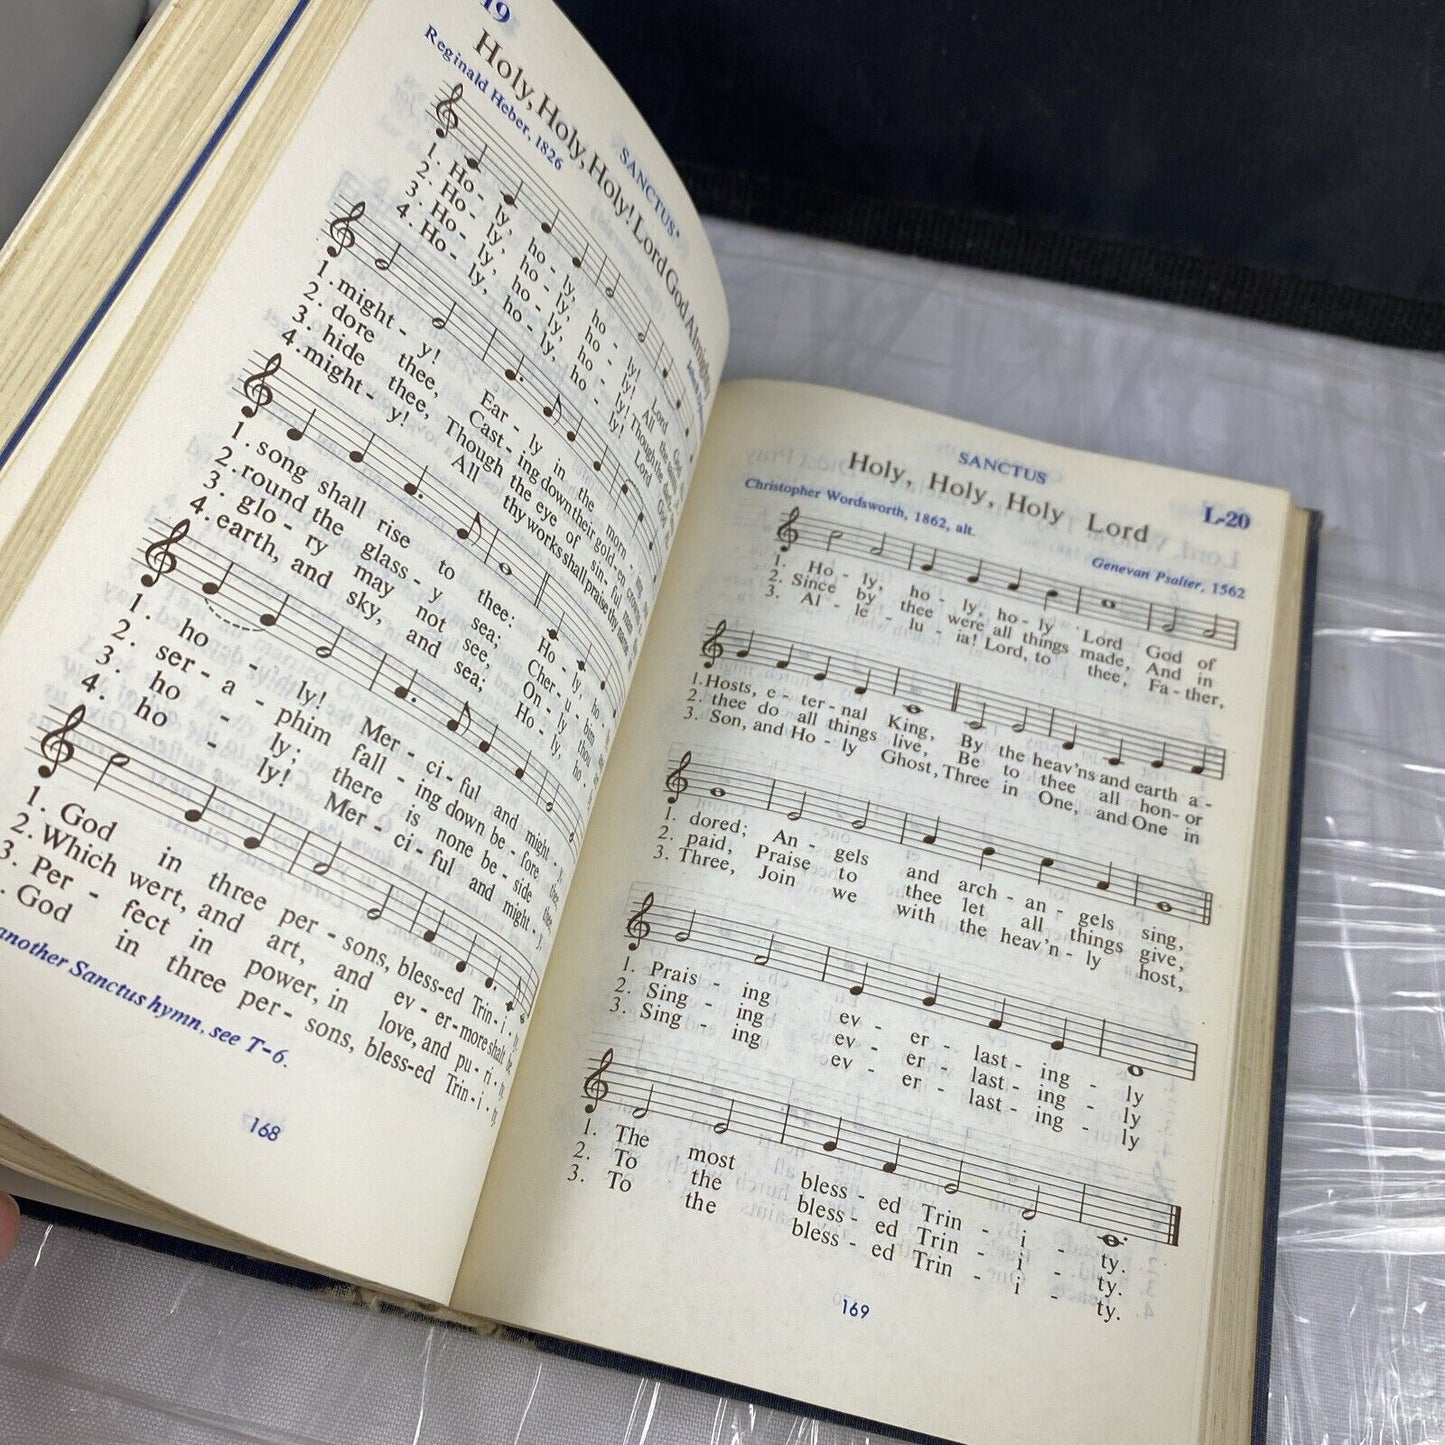 19
SANCTUS
Holy, Holy, Holy! Lord God Almighty
Reginald Heber, 1826
1. Ho - ly, ho - ly, ho - ly! Lord God
2. Ho - ly, ho - ly, ho - ly! All the
3. Ho - ly, ho - ly, ho - ly! Though the
4. Ho - ly, ho - ly, ho - ly! Lord God
1. might - y! Ear - ly in the morn -
2. dore thee, Cast - ing down their gold - en
3. hide thee, Though the eye of sin - ful
4. might - y! All thy works shall praise thy
1. song shall rise to thee: Ho - ly, ho -
2. round the glass - y sea; Cher - u - bim
3. glo - ry may not see, On - ly thou
4. earth, and sky, and sea; Ho - ly, ho -
1. ho - ly! Mer - ci - ful and might - y,
2. ser - a - phim fall - ing down be - fore thee,
3. ho - ly; there is none be - side thee,
4. ho - ly! Mer - ci - ful and might - y,
1. God in three per - sons, bless - ed Trin - i - ty.
2. Which wert, and art, and ev - er - more shalt be.
3. Per - fect in power, in love, and pu - ri - ty.
God in three per - sons, bless - ed Trin - i - ty.
another Sanctus hymn, see T-6.
168
SANCTUS
Holy, Holy, Holy Lord
L-20
Christopher Wordsworth, 1862, alt.
Genevan Psalter, 1562
1. Ho - ly, ho - ly, ho - ly Lord God of
2. Since by thee were all things made, And in
3. Al - le - lu - ia! Lord, to thee, Fa - ther,
1. Hosts, e - ter - nal King, By the heav'ns and earth a -
2. thee do all things live, Be to thee all hon - or
3. Son, and Ho - ly Ghost, Three in One, and One in
1. dored; An - gels and arch - an - gels sing,
2. paid, Praise to thee let all things give,
3. Three, Join we with the heav'n - ly host,
1. Prais - ing ev - er - last - ing - ly
2. Sing - ing ev - er - last - ing - ly
3. Sing - ing ev - er - last - ing - ly
1. The most bless - ed Trin - i - ty.
2. To the bless - ed Trin - i - ty.
3. To the bless - ed Trin - i - ty.
169